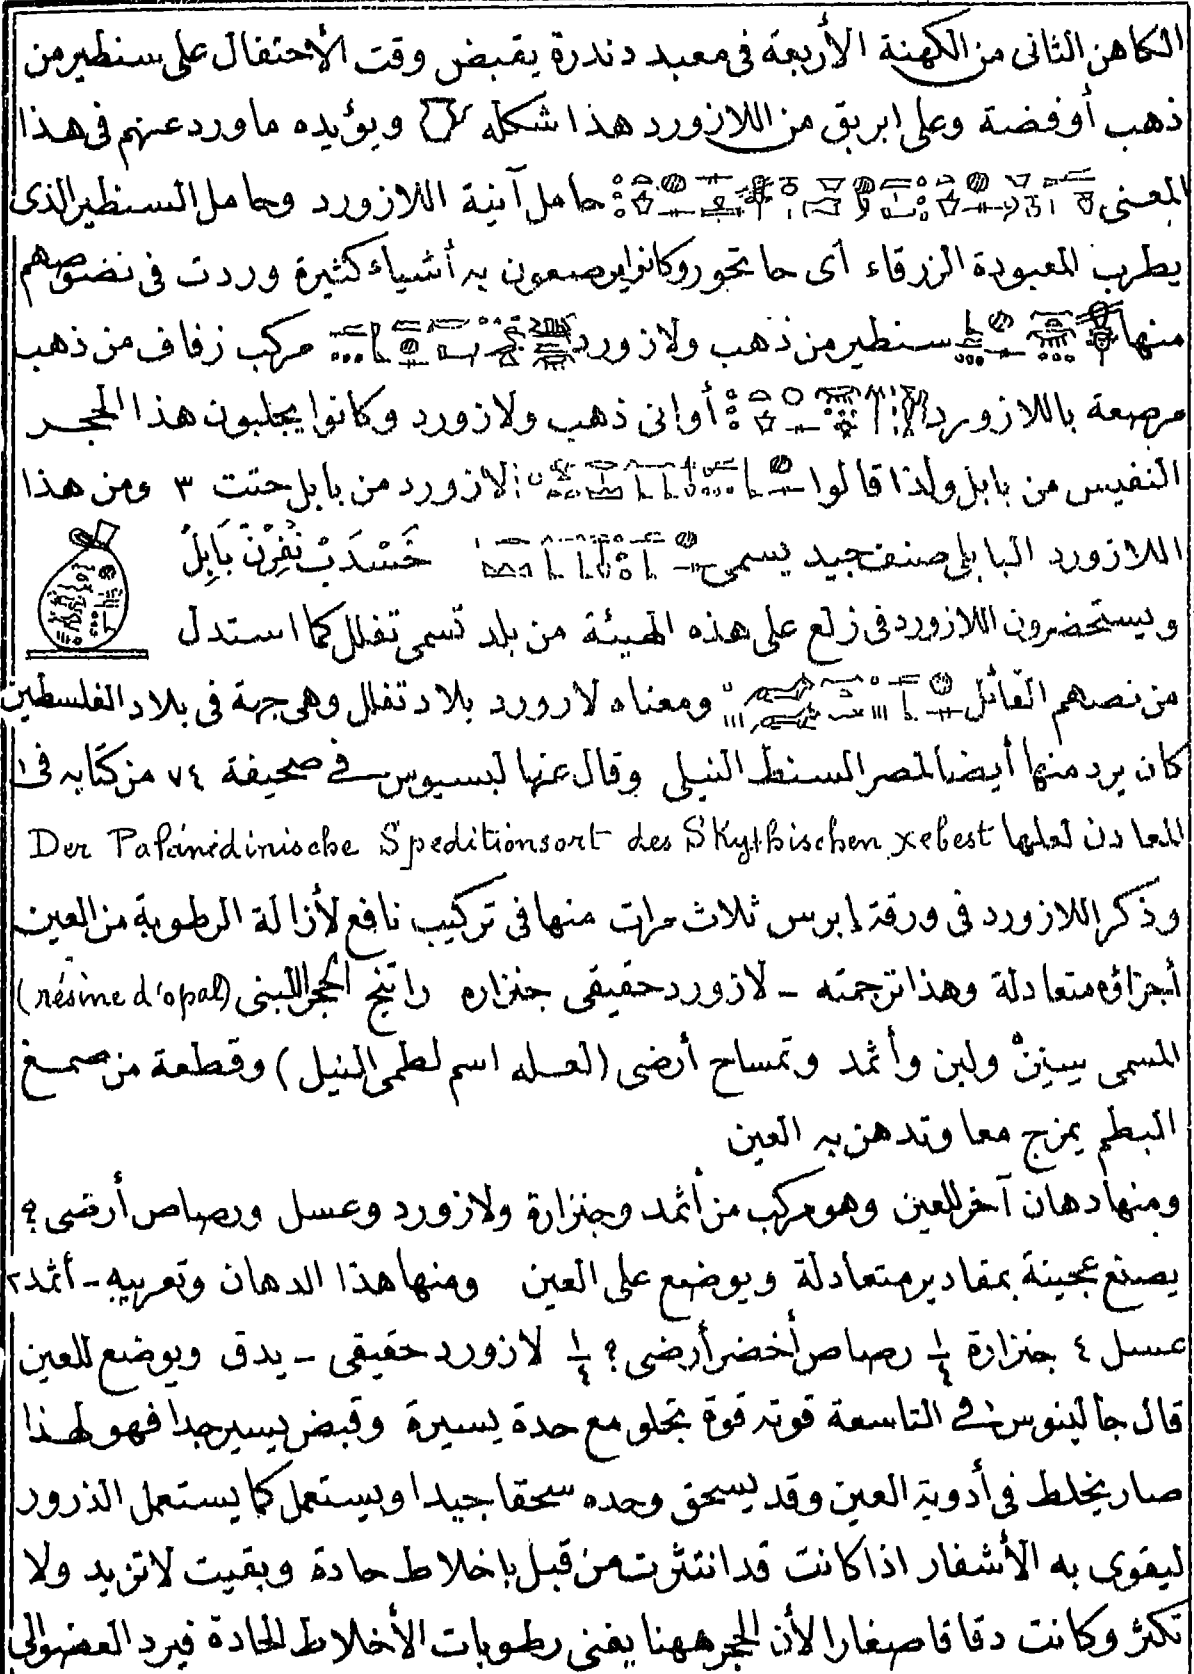 الكاهن الثانى من الكهنة الأربعة فى معبد دندرة يقبض وقت الأحتفال على سنطير من
ذهب أو فضة وعلى ابريق من اللازورد هذا شكله ويؤيده ما ورد عنهم فى هذا
المعنى حامل آنية اللازورد وحامل السنطير الذى
يطرب المعبودة الزرقاء أى حاتحور وكانوا يرصعون به أشياء كثيرة وردت فى نصوصهم
منها سنطير من ذهب ولازورد مركب زفاف من ذهب
مرصعة باللازورد أوانى ذهب ولازورد وكانوا يجلبون هذا الحجر
النفيس من بابل ولذا قالوا لازورد من بابل حتت ٣ ومن هذا
اللازورد البابلى صنف جيد يسمى خَسْدَبْ نُفِرْنْ بَابِلْ
ويستحضرون اللازورد فى زلع على هذه الهيئة من بلد تسمى تفلل كما استدل
من نصهم القائل ومعناه لارورد بلاد تفلل وهى جهة فى بلاد الفلسطين
كان يرد منها أيضا لمصر السنط النيلى وقال عنها لبسيوس فى صحيفة ٧٤ من كتابه فى
المعادن لعلها Der Palänedinische Speditionsort des Skythischen xebest
وذكر اللازورد فى ورقة إبرس ثلاث مرات منها فى تركيب نافع لأزالة الرطوبة من العين
أجزاؤه متعادلة وهذا ترجمته - لازورد حقيقى جنزاره راتنج الحجر اللبنى (résine d'opal)
المسمى ولبن وأثمد وتمساح أرضى (لعله اسم لطمى النيل) وقطعة من صمغ
البطم يمزج معا وتدهن به العين
ومنها دهان آخر للعين وهو مركب من أثمد وجنزارة ولازورد وعسل ورصاص أرضى ؟
يصنع عجينة بمقادير متعادلة ويوضع على العين ومنها هذا الدهان وتعريبه - أثمد ٢
عسل ٤ جنزارة ¼ رصاص أخضر أرضى ؟ ¼ لازورد حقيقى - يدق ويوضع للعين
قال جالينوس فى التاسعة قوته قوة تجلو مع حدة يسيرة وقبض يسير جدا فهو لهذا
صار يخلط فى أدوية العين وقد يسحق وحده سحقا جيدا ويستعمل كما يستعمل الذرور
ليقوى به الأشفار اذا كانت قد انتثرت من قبل باخلاط حادة وبقيت لا تزيد ولا
تكثر وكانت دقاقا صغارا لأن الحجر ههنا يفنى رطوبات الأخلاط الحادة فيرد العضو الى